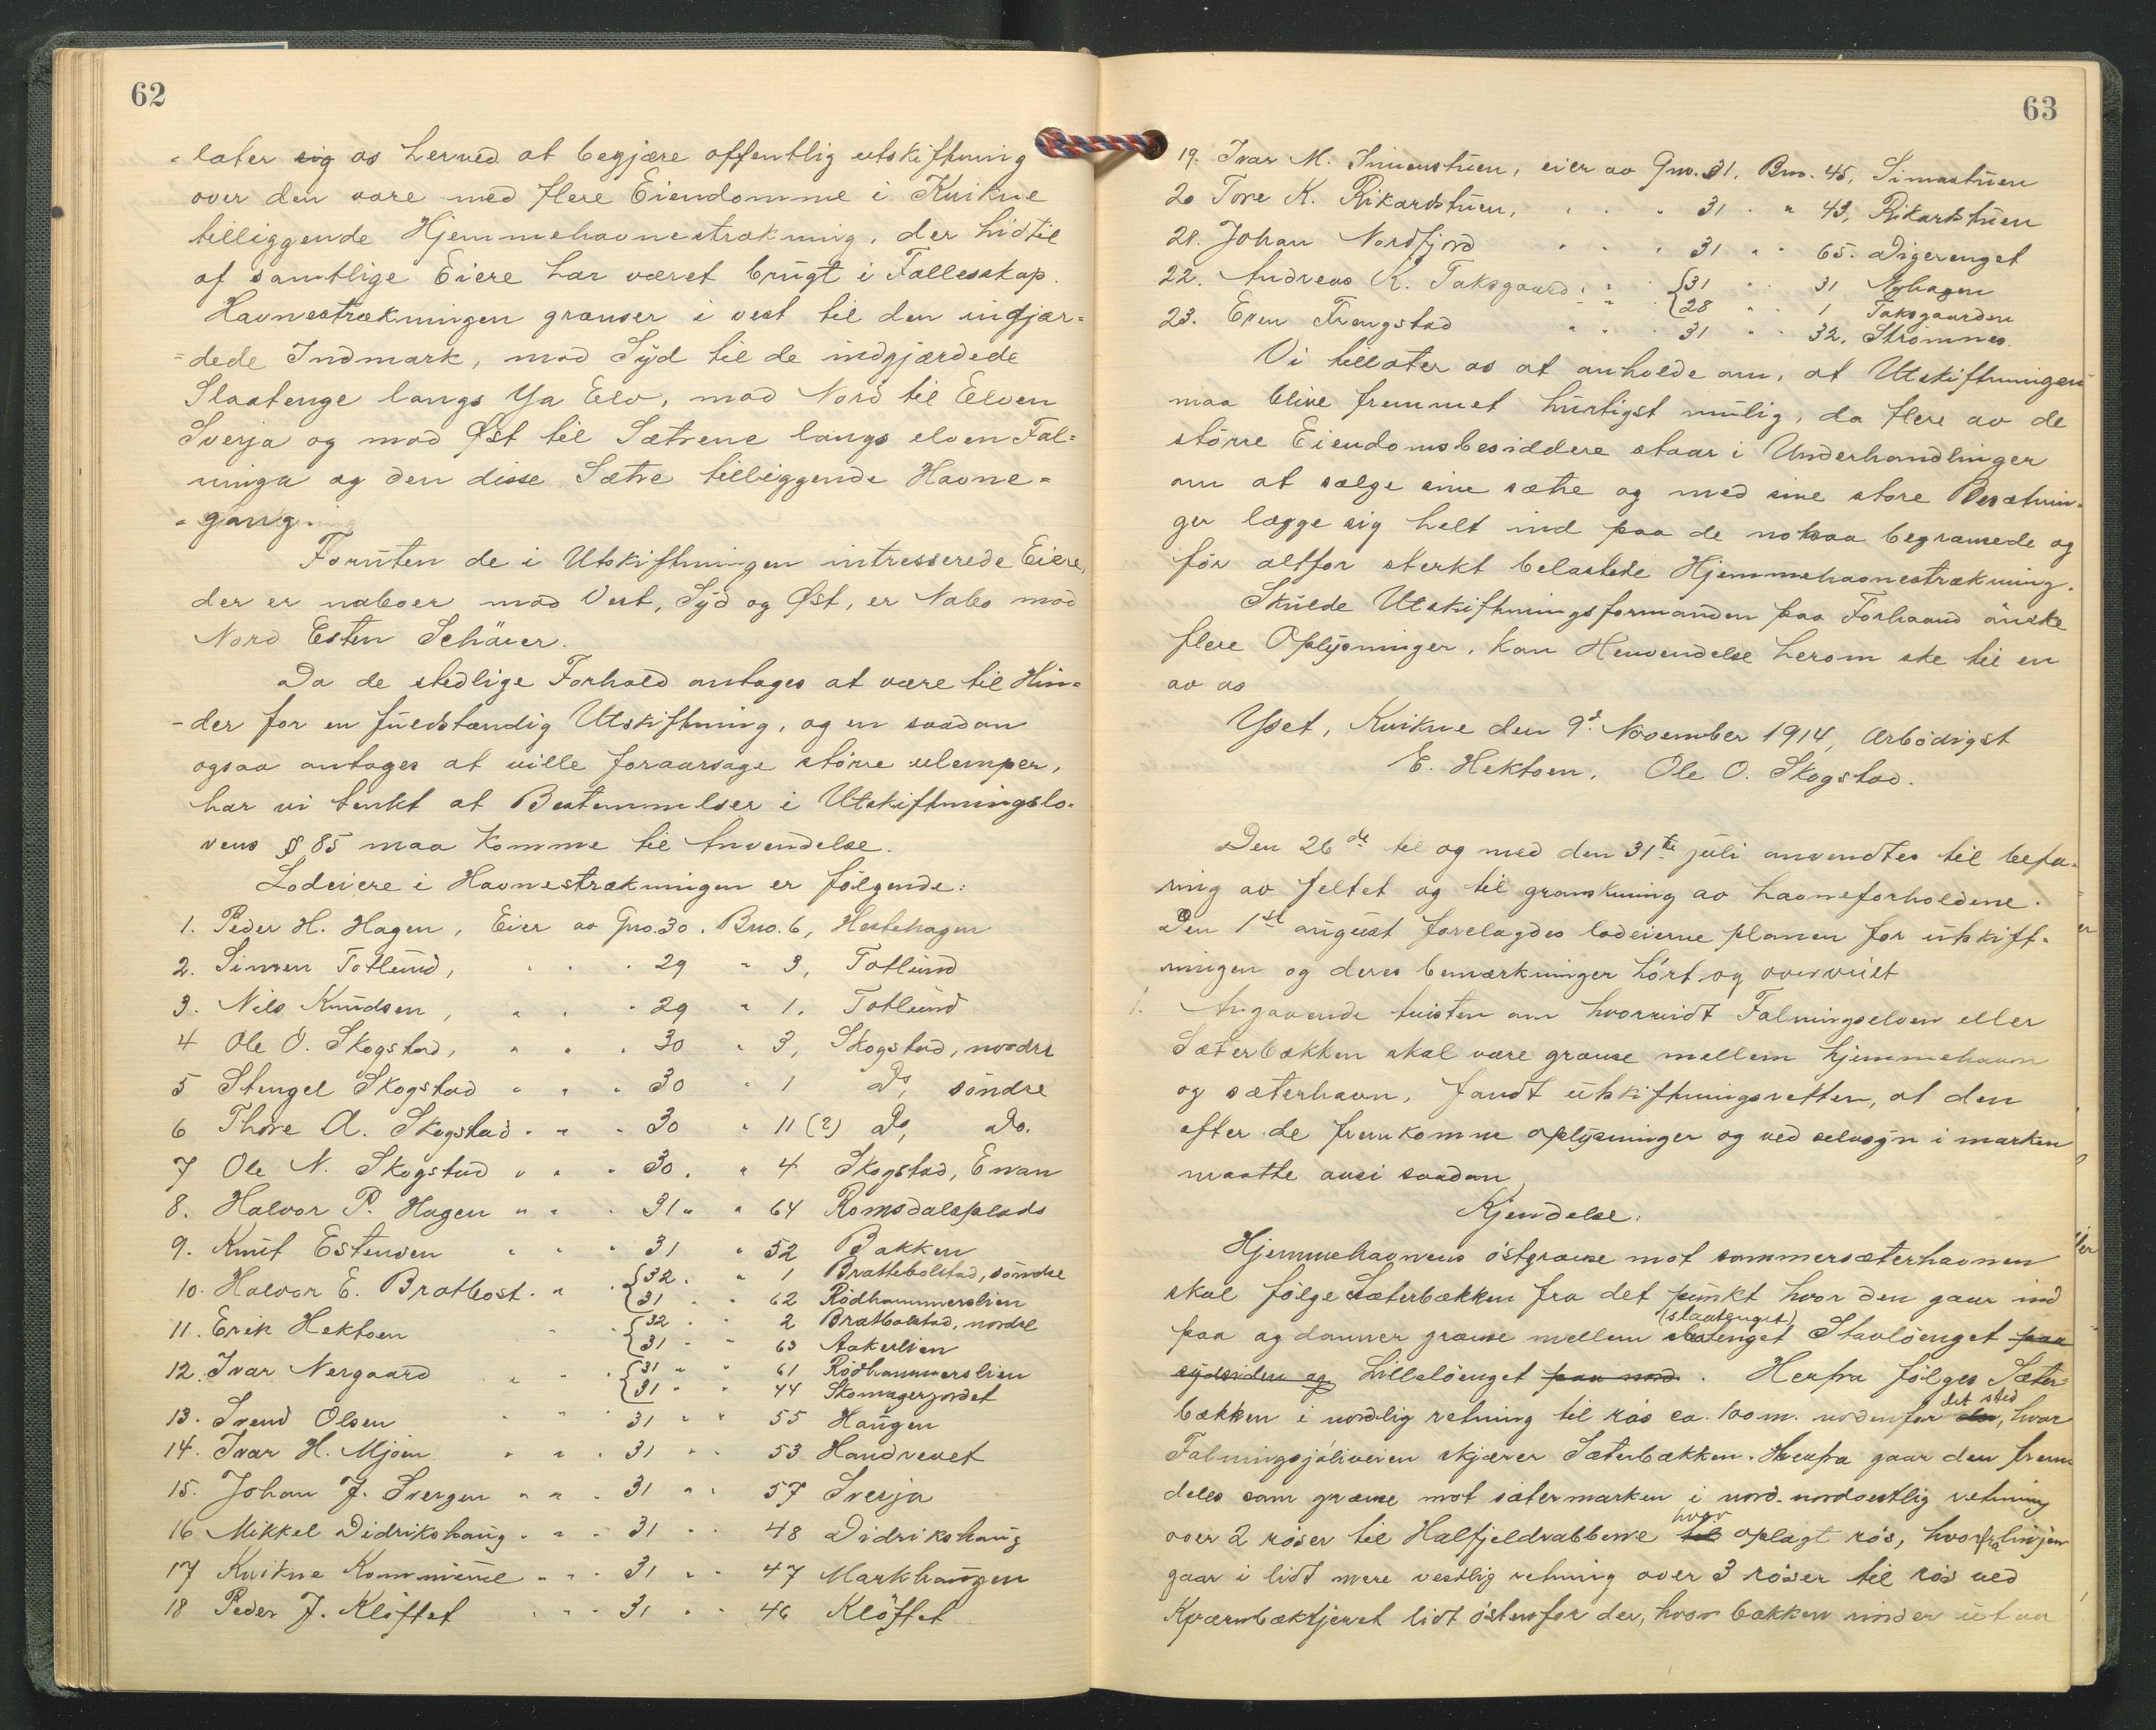 62
„later sig os herved at begjære offentlig utskiftning
over den vore med flere Eiendomme i Kvikne
tilliggende Hjemmehavnestrækning, der hidtil
af samtlige Eiere har været brugt i Fællesskap.
Havnestrækningen grænser i vest til den indgjær=
=dede Indmark, mod Syd til de indgjærdede
Slaatenge langs Ya Elv, mod Nord til Elven
Sverja og mod Øst til Sætrene langs elven Fal=
ninga og den disse Sætre tilliggende Havne=
=gang.
Foruten de i Utskiftningen intresserede Eiere,
der er naboer mod Vest, Syd og Øst, er Nabo mod
Nord Esten Schärer.
Da de stedlige Forhold antages at være til Hin=
-der for en fuldstændig Utskiftning, og en saadan
ogsaa antages at ville foraarsage större ulemper,
har vi tenkt at Bestemmelser i Utskiftningslo-
vens § 85 maa komme til Anvendelse.
Lodeiere i Havnestrækningen er følgende:
1. Peder H. Hagen, Eier av Gno. 30. Bno. 6, Hestehagen
2. Simen Totlund, " " " 29 " 3, Totlund
3. Nils Knudsen, " " " 29 " 1, Totlund
4 Ole O. Skogstad, " " " 30 " 3, Skogstad, nordre
5 Stengel Skogstad " " " 30 " 1 Do, söndre
6 Thore A. Skogstad " " " 30 " 11 (?) Do, Do.
7 Ole N. Skogstad " " " 30. " 4 Skogstad, Enan
8. Halvor P. Hagen " " " 31 " " 64 Romsdalsplads
9. Knut Estensen " " " 31 " 52 Bakken
10. Halvor E. Bratbost. " " {32. " 1 Brattebolstad, söndre
{31 " " 62 Rödhammerslien
11. Erik Hektoen " {32 " " 2 Bratbolstad, nordre
{31 " " 63 Aakerlien
12. Ivar Nergaard " " {31 " " 61 Rödhammerslien
{31 " " 44 Skomagerjordet
13. Svend Olsen " " " 31 " " 55 Haugen
14. Ivar H. Mjöen " " " 31 " " 53 Handrevet
15. Johan J. Svergen " " " 31 " " 57 Sverja
16 Mikkel Didrikshaug " " " 31 " " 48 Didrikshaug
17 Kvikne Kommune " " " 31 " " 47 Markhaugen
18 Peder J. Klöftet " " " 31 " " 46 Klöftet
63
19. Ivar M. Simenstuen, eier av Gno. 31. Bno. 45, Simastuen
20 Tore K. Rikardstuen, " " " 31 " " 43, Rikardstuen
21. Johan Nordfjord " " " 31 " " 65. Digerenget
22. Andreas K. Taksgaard " " {31 " " 31 Nyhagen
" " {28 " " 1 Taksgaarden
23. Even Frengstad " " " 31 " " 32, Strömnes.
Vi tillater os at anholde om, at Utskiftningen
maa blive fremmet hurtigst mulig, da flere av de
större Eiendomsbesiddere staar i Underhandlinger
om at sælge sine sætre og med sine store Besætnin-
ger lægge sig helt ind paa de noksaa begrænsede og
för altfor sterkt belastede Hjemmehavnestrækning.
Skulde Utskiftningsformanden paa Forhaand önske
flere Oplysninger, kan Henvendelse herom ske til en
av os
Yset, Kvikne den 9de November 1914, Ærbödigst
E. Hektoen. Ole O. Skogstad.
Den 26de til og med den 31te juli anvendtes til befa-
ring av feltet og til granskning av havneforholdene.
Den 1st august forelagdes lodeierne planen for utskift-
ningen og deres bemærkninger hört og overveiet
1. Angaaende tvisten om hvorvidt Falningselven eller
Sæterbækken skal være grænse mellem hjemmehavn
og sæterhavn, fandt utskiftningsretten, at den
efter de fremkomne oplysninger og ved selvsyn i marken
maatte avsi saadan
Kjendelse:
Hjemmehavnens östgrænse mot sommersæterhavnen
skal følge Sæterbækken fra det punkt hvor den gaar ind
(slaatenget)
paa og danner grænse mellem slatenget Stavlöenget paa
sydsiden og Lillelöenget paa nord. Herfra fölges Sæter=
det sted
bækken i nordlig retning til rös ca. 100 m. nordenfor der, hvor
Falningsjöliveien skjærer Sæterbækken. Herfra gaar den frem
deles som grænse mot sætermarken i nord-nordostlig retning
hvor
over 2 röser til Halfjeldrabberne til oplagt rös, hvorfra linjen
gaar i lidt mere vestlig retning over 3 röser til rös ved
Kværnbæktjernet lidt östenfor der, hvor bækken rinder ut av